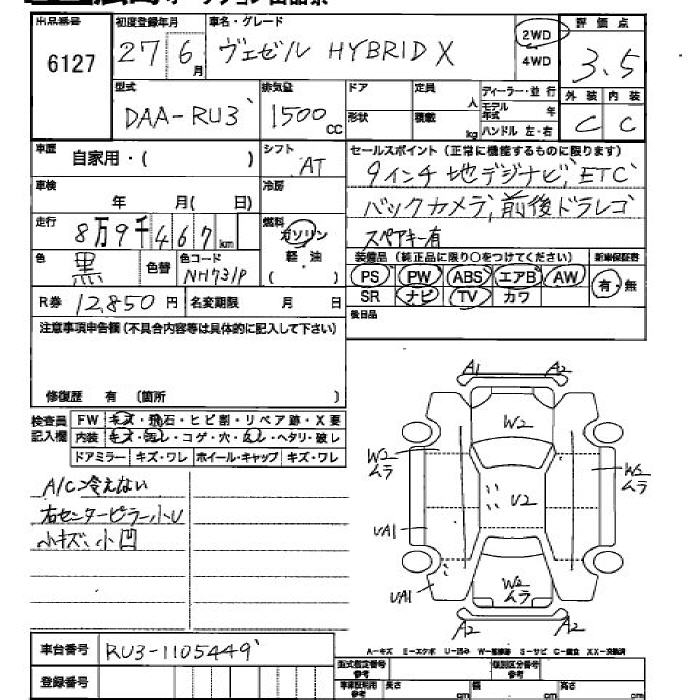 出品番号 初度登録年月 車名・グレード 2WD 評価点
6127 27 6月 ヴェゼル HYBRID X 4WD 3.5
型式 排気量 ドア 定員 人 ディーラー・並行 外装 内装
DAA-RU3 1500cc 形状 積載 kg モデル年式 年 C C
ハンドル 左・右
車歴 自家用・( ) シフト AT セールスポイント(正常に機能するものに限ります)
9インチ地デジナビ, ETC
車検 年 月( 日) 冷房 バックカメラ, 前後ドラレコ
走行 8万9千467km 燃料 ガソリン スペアキー有
軽・油
( )
色 黒 色替 色コード NH731P 装備品(純正品に限り○をつけてください) 新車保証書
PS PW ABS エアB AW 有・無
R券 12,850円 名変期限 月 日 SR ナビ TV カワ
後日品
注意事項申告欄(不具合内容等は具体的に記入して下さい)
修復歴 有 (箇所 )
検査員記入欄 FW キズ・飛石・ヒビ割・リペア跡・X要
内装 キズ・汚レ・コゲ・穴・ムレ・ヘタリ・破レ
ドアミラー キズ・ワレ ホイール・キャップ キズ・ワレ
A/C冷えない
右センターピラー小U
小キズ、小凹
A1 A2
W2
W2 ムラ W2 ムラ
U2
UA1
W2 ムラ
UA1
A2 A2
車台番号 RU3-1105449
A-キズ E-エクボ U-凹み W-補修跡 S-サビ C-腐食 XX-交換済
登録番号 型式指定番号 参考 類別区分番号 参考
長さ cm 幅 cm 高さ cm